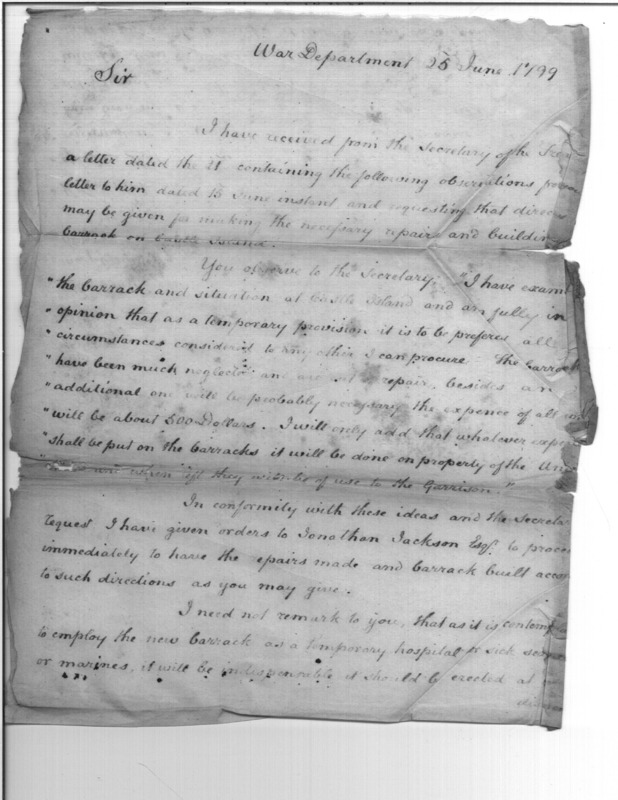 War Department 25 June 1799
Sir
I have received from the Secretary of the Trea
a letter dated the 21st containing the following observations from
letter to him dated 15 June instant and requesting that direc
may be given for making the necessary repairs and building
barrack on Castle Island.
You observe to the Secretary. "I have exam
"the barrack and situation at Castle Island and am fully in
"opinion that as a temporary provision it is to be prefered all
"circumstances considered to any other I can procure. The barrack
"have been much neglected and are out of repair, besides an
"additional one will be probably necessary the expence of all
"will be about 500 Dollars. I will only add that whatever expen
"shall be put on the barracks it will be done on property of the Uni
when left they will be of use to the Garrison."
In conformity with these ideas and the Secretar
request I have given orders to Jonathan Jackson Esqr. to procee
immediately to have the epairs made and barrack built accor
to such directions as you may give.
I need not remark to you, that as it is contempl
to employ the new barrack as a temporary hospital for sick
or marines, it will be indispensible it should be erected at